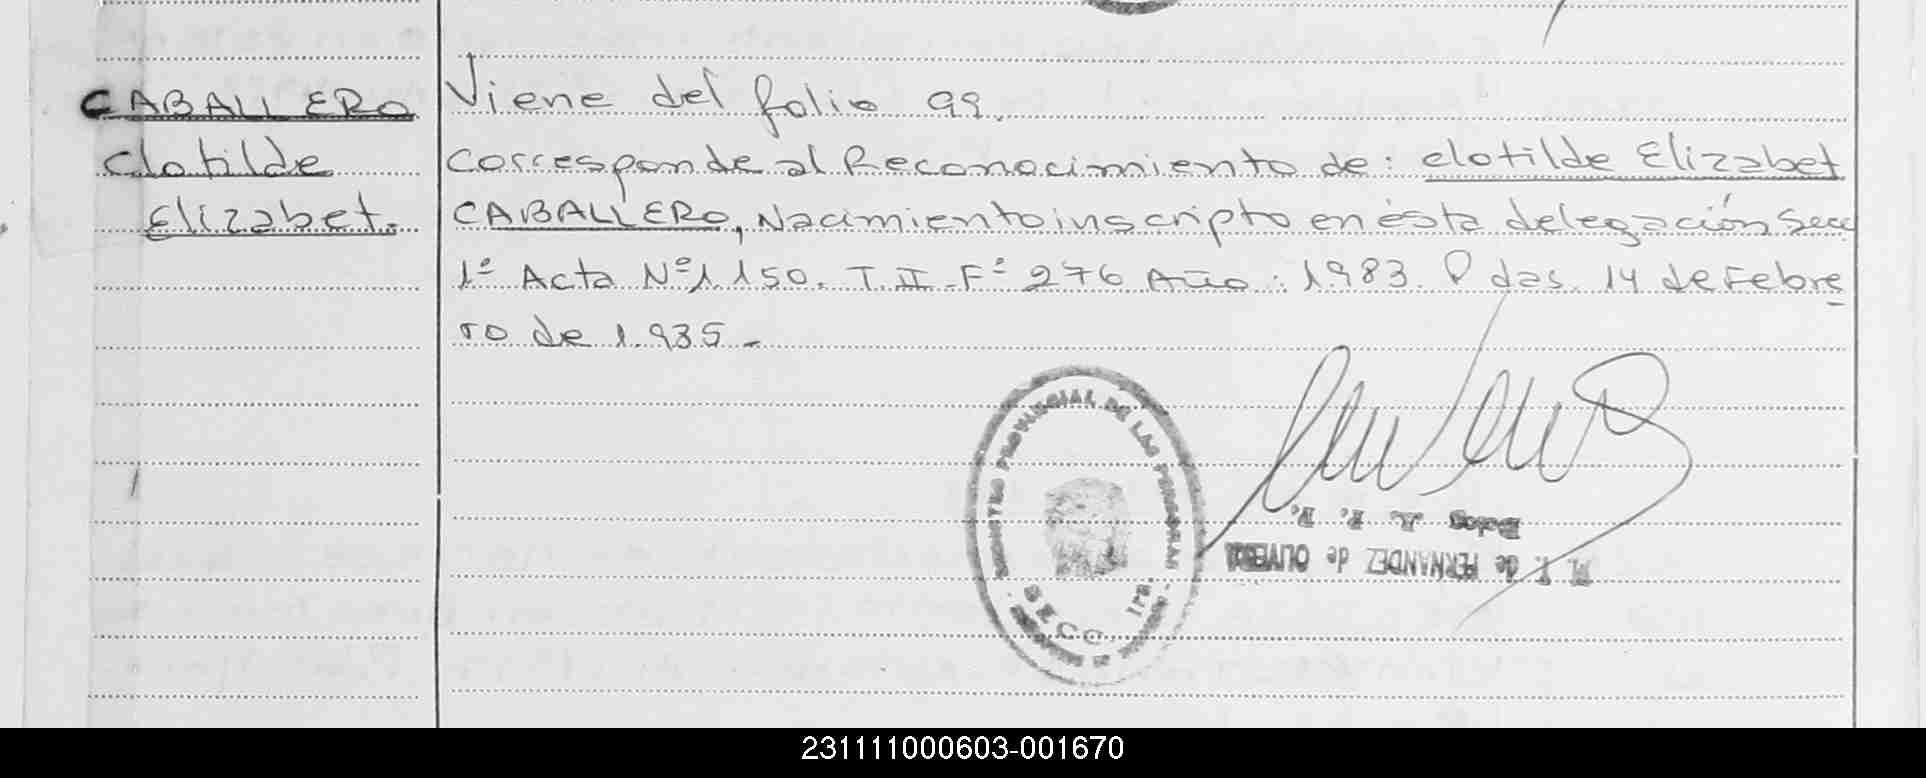 CABALLERO
Clotilde
Elizabet.
Viene del folio 99.
Corresponde al Reconocimiento de: Clotilde Elizabet
CABALLERO, Nacimiento inscripto en ésta delegación Secc
1º Acta Nº 1.150. T. II. Fº 276 Año: 1983. P das. 14 de Febre
ro de 1.935.-
REGISTRO PROVINCIAL DE LAS PERSONAS
SECC. 1ra.
Deleg R. P. P.
M. T. de FERNANDEZ de OLIVERA
231111000603-001670